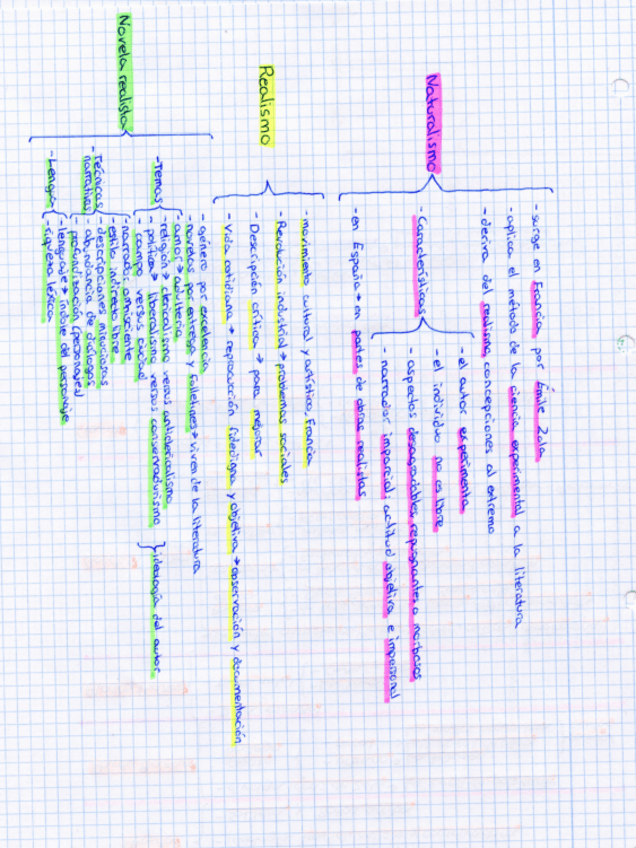 Naturalismo
- surge en Francia por Émile Zola
- aplica el método de la ciencia experimental a la literatura
- deriva del realismo, concepciones al extremo
- Características
- el autor experimenta
- el individuo no es libre
- aspectos desagradables, repugnantes o morbosos
- narrador imparcial, actitud objetiva e impersonal
- en España → en partes de obras realistas
Realismo
- movimiento cultural y artístico, Francia
- Revolución industrial → problemas sociales
- Descripción crítica → para mejorar
- Vida cotidiana → reproducción fidedigna y objetiva → observación y documentación
Novela realista
- género por excelencia
- novelas por entregas y folletines → viven de la literatura
- Temas
amor → adulterio
- religión → clericalismo versus anticlericalismo
- política → liberalismo versus conservadurismo
- campo versus ciudad
ideología del autor
- Técnicas narrativas
- narrador omnisciente
- estilo indirecto libre
- descripciones minuciosas
- abundancia de diálogos
(personajes)
- Lengua
- lenguaje → índole del personaje
- riqueza léxica